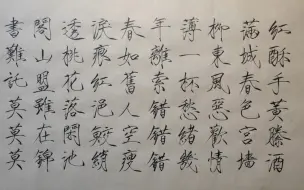 紅酥手黃藤酒
滿城春色宮墻
柳東風惡歡情
薄一杯愁緒幾
年離索錯錯錯
春如舊人空瘦
淚痕紅浥鮫綃
透桃花落閒池
閣山盟雖在錦
書難託莫莫莫